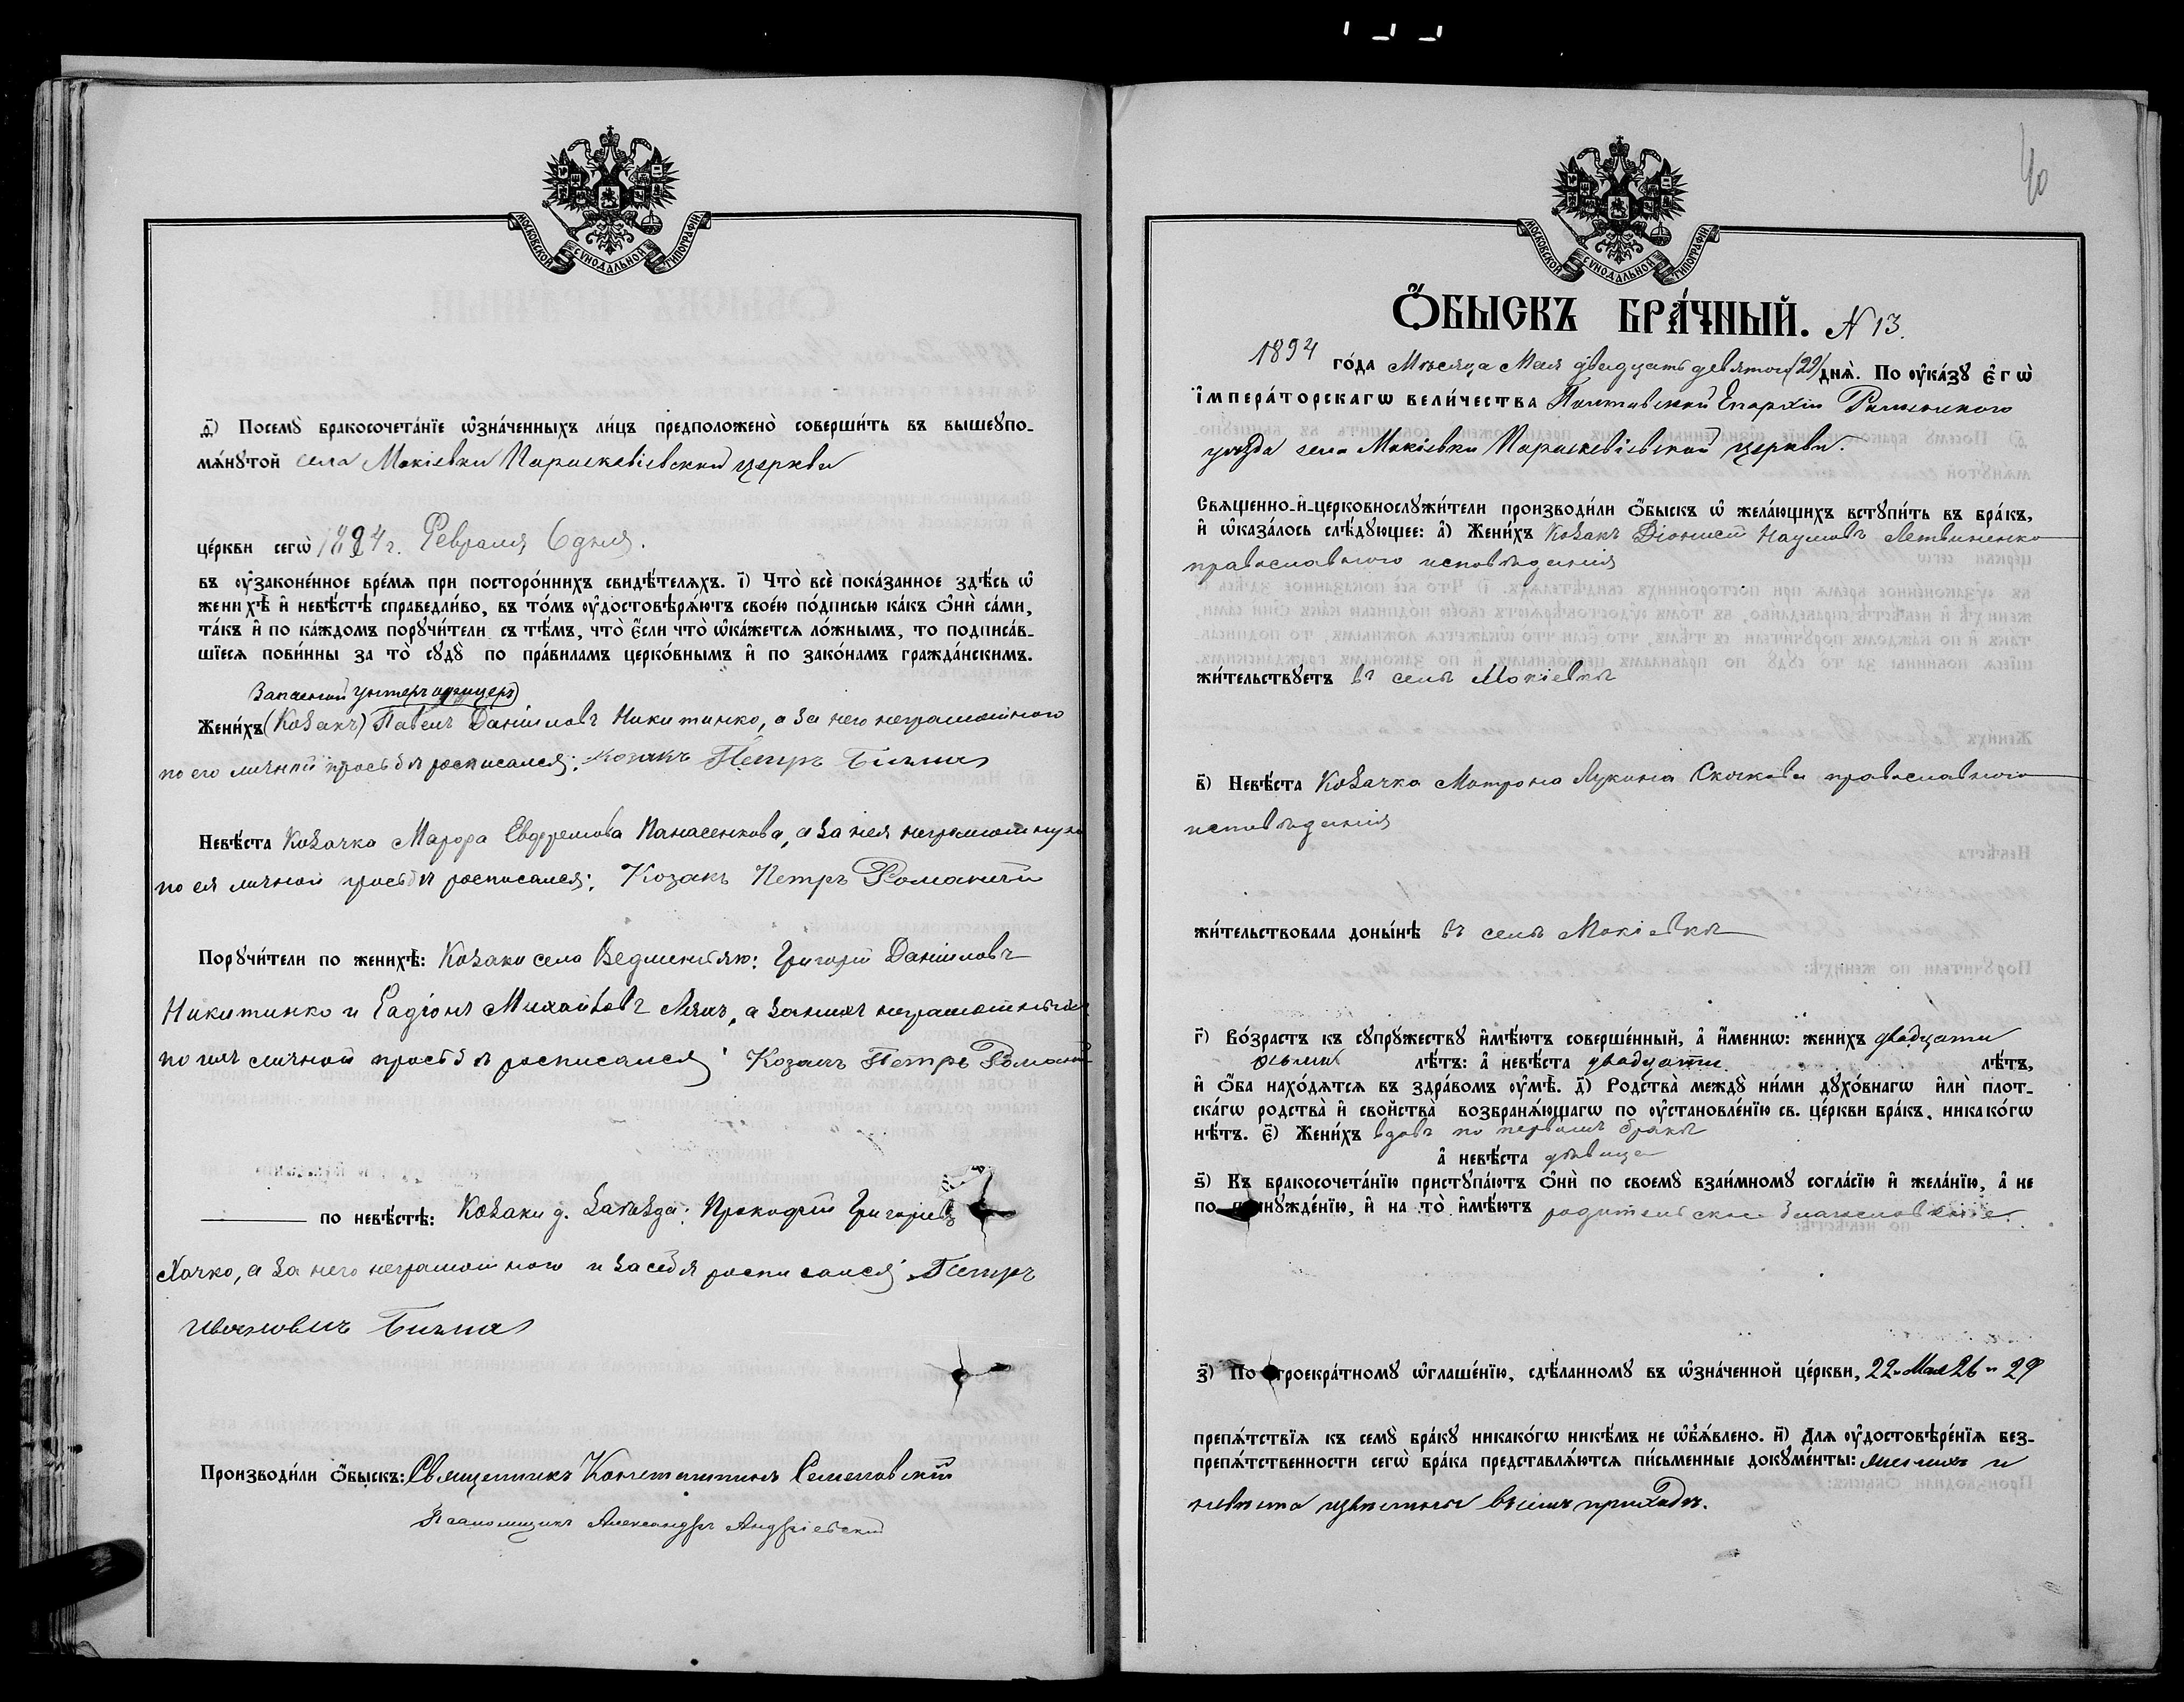 МОСКОВСКОЙ СУНОДАЛЬНОЙ ТИПОГРАФІИ
д҃) Посемꙋ̀ бракосочета́нїе ѡ҆зна́ченныхъ ли́цъ предположено̀ соверши́ть въ вышеꙋпо-
мѧ́нꙋтой села Мокіевки Параскевіевской церкви
це́ркви сегѡ̀ 1894 г. Февраля 6 дня.
въ ᲂу҆законе́нное вре́мѧ при посторо́ннихъ свидѣ́телѧхъ. і҃) Что̀ всѐ пока́занное здѣ́сь ѡ҆
женихѣ̀ и҆ невѣ́стѣ справедли́во, въ то́мъ ᲂу҆достовѣрѧ́ютъ свое́ю по́дписью ка́къ ѻ҆нѝ са́ми,
та́къ и҆ по ка́ждомъ порꙋчи́тели съ тѣ́мъ, что̀ є҆́сли что̀ ѡ҆ка́жетсѧ ло́жнымъ, то подписа́в-
шїесѧ пови́нны за то̀ сꙋдꙋ̀ по пра́виламъ церко́внымъ и҆ по зако́намъ гражда́нскимъ.
Запасный унтеръ офицеръ
Жени́хъ (Козакъ) Павелъ Даніиловъ Никитинко, а за него неграмотного
по его личной просьбѣ росписался: козакъ Петръ Бильма
Невѣ́ста Козачка Марфа Евфремова Панасенкова, а за нея неграмотную
по ея личной просьбѣ росписался: Козакъ Петръ Романий
Порꙋчи́тели по женихѣ̀: Козаки села Григорій Даніиловъ
Никитинко и Радіонъ Михайловъ Ляхъ, а за нихъ неграмотныхъ
по ихъ личной просьбѣ росписался Козакъ Петръ Романий
по невѣ́стѣ: Козаки д. Заѣзда: Прокофій Григоріевъ
Хачко, а за него неграмотного и за себя росписался Петръ
Ивановичъ Бильма
Производи́ли ѻ҆́быскъ: Священникъ Константинъ Семеновскій
Псаломщикъ Александръ Андріевскій
МОСКОВСКОЙ СУНОДАЛЬНОЙ ТИПОГРАФІИ
Ѻ҆́БЫСКЪ БРА́ЧНЫЙ. N 13.
1894 го́да Мѣсяца Мая двадцать девятого (29) днѧ̀. По ᲂу҆ка́зꙋ є҆гѡ̀
і҆мпера́торскагѡ вели́чества Полтавской Епархіи Роменского
уѣзда села Мокіевки Параскевіевской церкви.
Свѧще́нно-и҆-церковнослꙋжи́тели производи́ли ѻ҆́быскъ ѡ҆ жела́ющихъ встꙋпи́ть въ бра́къ,
и҆ ѡ҆каза́лось слѣ́дꙋющее: а҃) Жени́хъ Козакъ Діонисій Наумовъ Летвиненко
православного исповѣданія
жи́тельствꙋетъ въ селѣ Мокіевкѣ
в҃) Невѣ́ста Козачка Матрона Лукина Скочкова православного
исповѣданія
жи́тельствовала доны́нѣ въ селѣ Мокіевкѣ
г҃) Во́зрастъ къ сꙋпрꙋ́жествꙋ и҆мѣ́ютъ соверше́нный, а҆ и҆́менно: женихъ двадцати
семи лѣ́тъ: а҆ невѣ́ста двадцати лѣ́тъ,
и҆ ѻ҆́ба нахо́дѧтсѧ въ здра́вомъ ᲂу҆мѣ̀. д҃) Родства̀ междꙋ̀ ни́ми дꙋхо́внагѡ и҆лѝ плот-
ска́гѡ родства̀ и҆ сво́йства̀ возбранѧ́ющагѡ по ᲂу҆становле́нїю св. це́ркви бра́къ, никако́гѡ
нѣ́тъ. є҃) Жени́хъ вдовъ по первомъ бракѣ
а҆ невѣ́ста дѣвица
ѕ҃) Къ бракосочета́нїю пристꙋпа́ютъ ѻ҆нѝ по своемꙋ̀ взаи́мномꙋ согла́сїю и҆ жела́нїю, а҆ не
по принꙋжде́нїю, и҆ на то̀ и҆мѣ́ютъ родительское благословеніе.
з҃) По троекра́тномꙋ ѡ҆глаше́нїю, сдѣ́ланномꙋ въ ѡ҆зна́ченной це́ркви, 22 Мая 26 и 29
препѧ́тствїѧ къ семꙋ̀ бра́кꙋ никако́гѡ никѣ́мъ не ѡ҆б̾ѧ́влено. и҃) Длѧ ᲂу҆достовѣре́нїѧ без-
препѧ́тственности сегѡ̀ бра́ка представлѧ́ютсѧ пи́сьменные докꙋме́нты: женихъ и
невѣста извѣстны въ приходѣ.